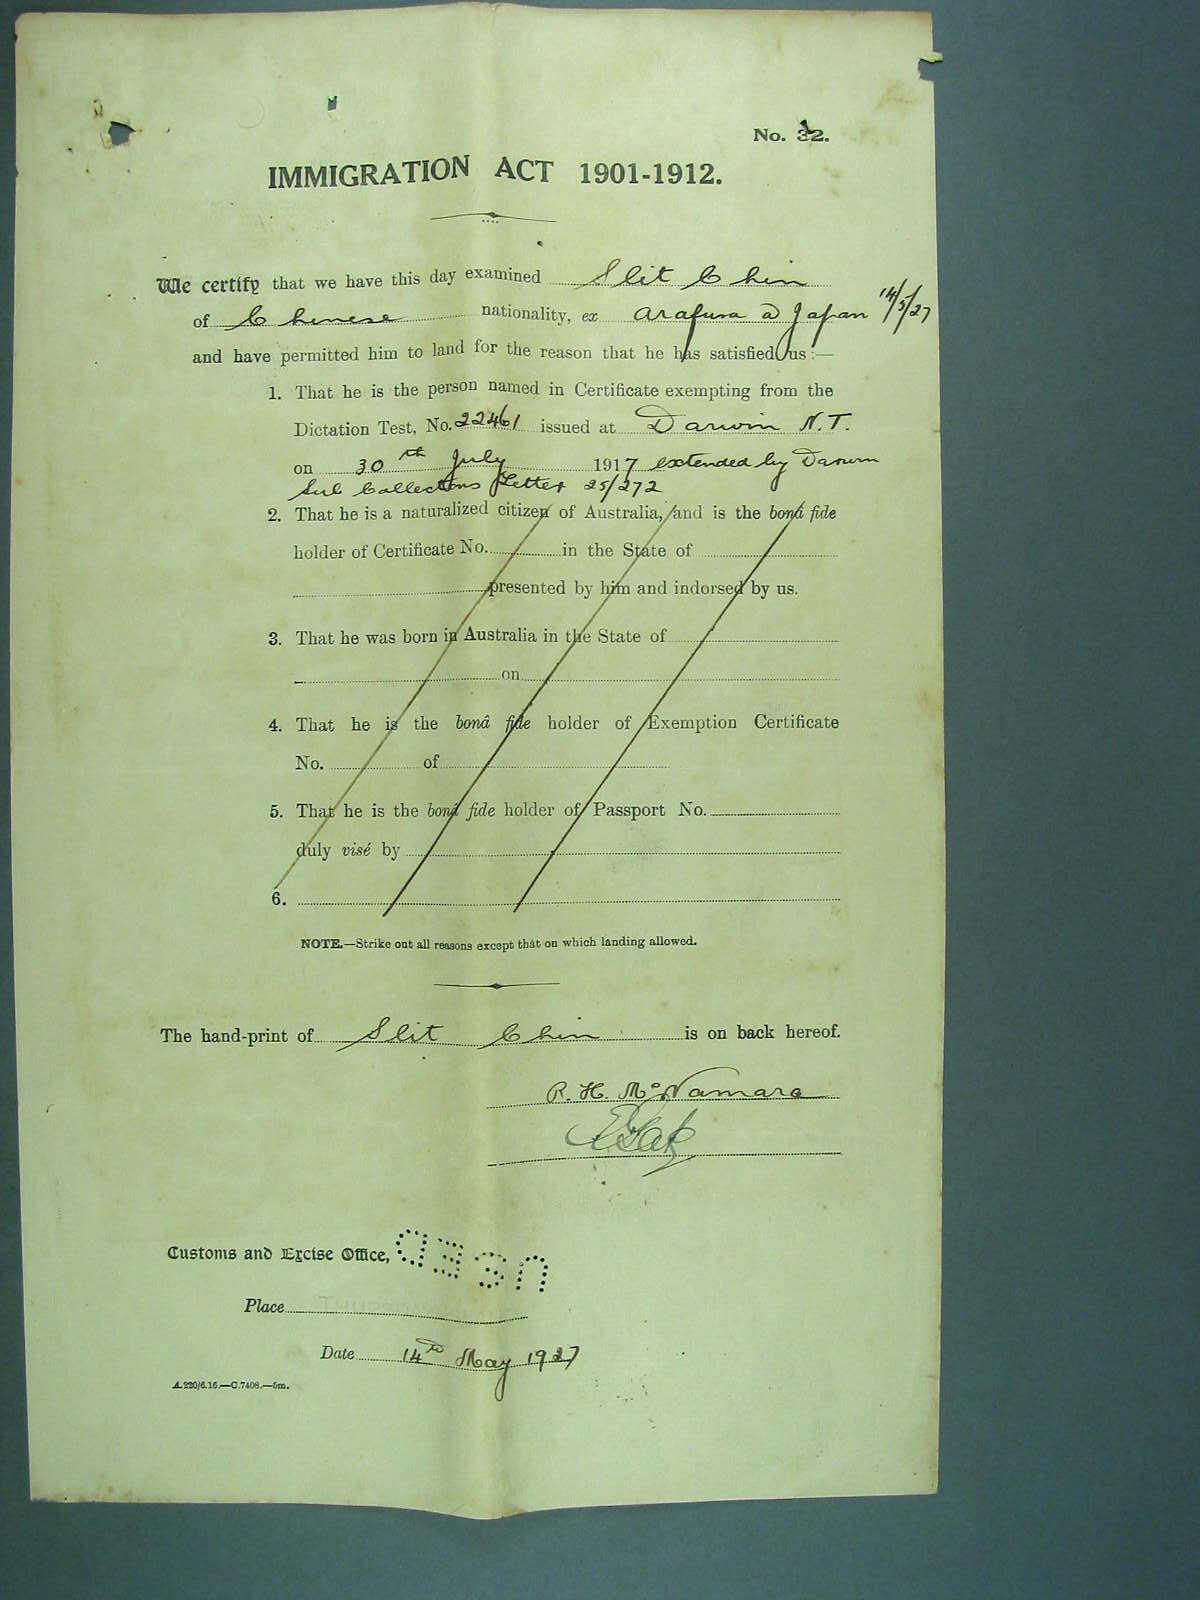 No. 32.
IMMIGRATION ACT 1901-1912.
We certify that we have this day examined Slit Chin
of Chinese nationality, ex Arafura a Japan 14/5/27
and have permitted him to land for the reason that he has satisfied us :—
1. That he is the person named in Certificate exempting from the
Dictation Test, No. 22461 issued at Darwin N.T.
on 30th July 1917 extended by Darwin
Sub Collectors Letter 25/272
2. That he is a naturalized citizen of Australia, and is the bonâ fide
holder of Certificate No. in the State of
presented by him and indorsed by us.
3. That he was born in Australia in the State of
on
4. That he is the bonâ fide holder of Exemption Certificate
No. of
5. That he is the bonâ fide holder of Passport No.
duly visé by
6.
NOTE.—Strike out all reasons except that on which landing allowed.
The hand-print of Slit Chin is on back hereof.
R. H. McNamara
Customs and Excise Office, USED
Place
Date 14th May 1927
A.220/6.16.—C.7408.—5m.